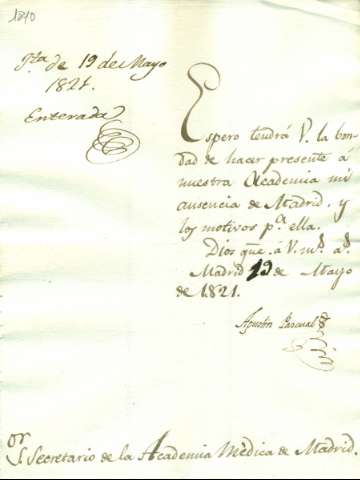 1840
Jta de 19 de Mayo
1821.
Enterada
Espero tendrá V. la bon-
dad de hacer presente á
nuestra Academia mi
ausencia de Madrid, y
los motivos pa ella.
Dios gue. á V. ms. as.
Madrid 19 de Mayo
de 1821.
Agustin Pascual
Sor Secretario de la Academia Médica de Madrid.